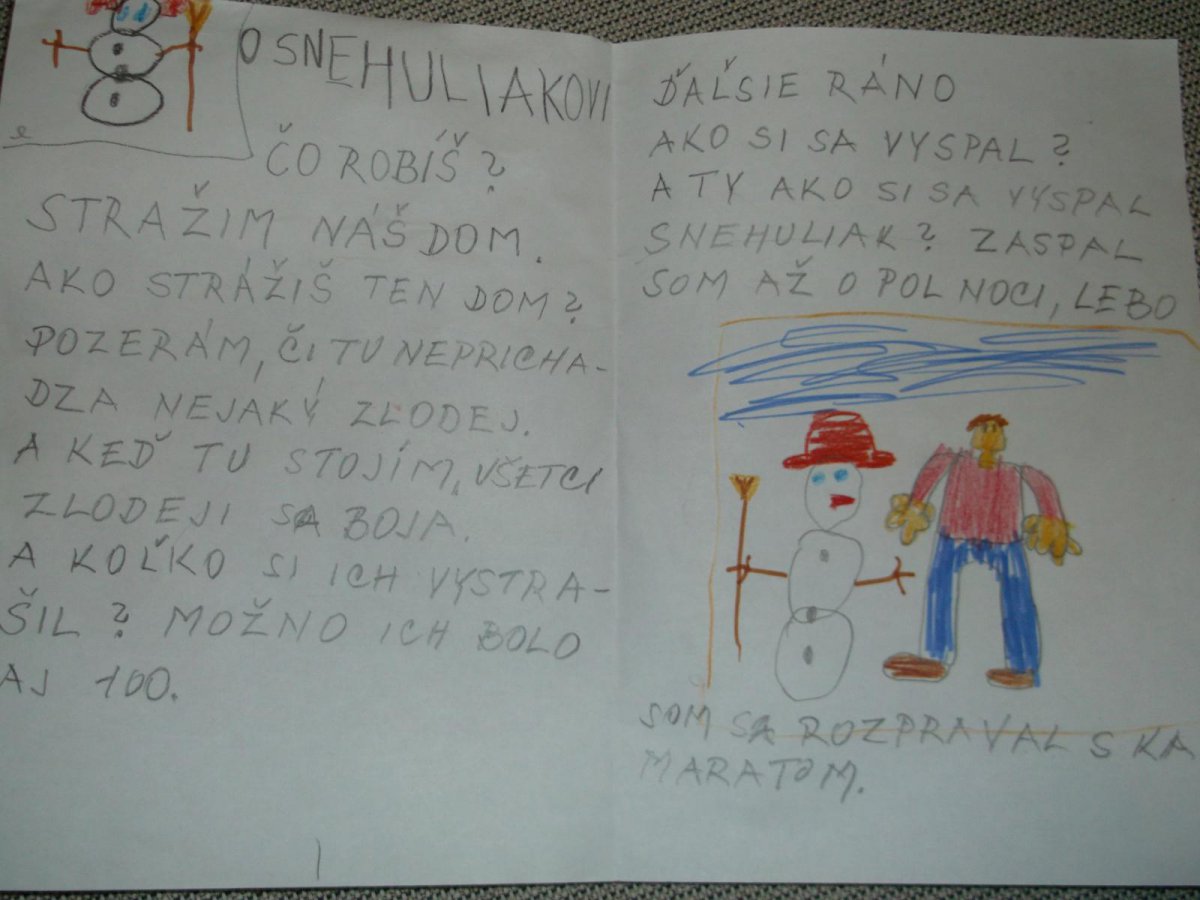 O SNEHULIAKOVI
ČO ROBÍŠ?
STRAŽIM NÁŠ DOM.
AKO STRÁŽIŠ TEN DOM?
POZERÁM, ČI TU NEPRICHA-
DZA NEJAKÝ ZLODEJ.
A KEĎ TU STOJÍM, VŠETCI
ZLODEJI SA BOJA.
A KOĽKO SI ICH VYSTRA-
ŠIL? MOŽNO ICH BOLO
AJ 100.
ĎAĽŠIE RÁNO
AKO SI SA VYSPAL?
A TY AKO SI SA VYSPAL
SNEHULIAK? ZASPAL
SOM AŽ O POL NOCI, LEBO
SOM SA ROZPRAVAL S KA
MARATOM.